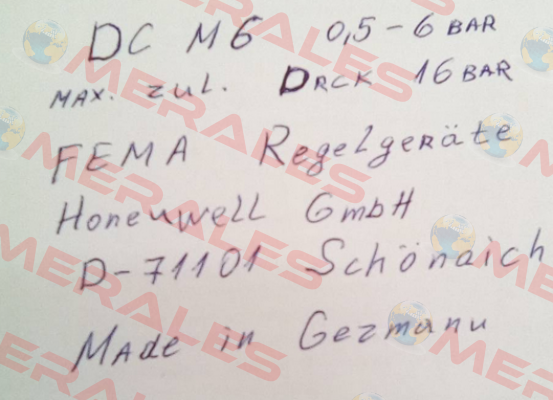 DC M6 0,5-6 BAR
MAX. zul. DRCK 16 BAR
FEMA Regelgeräte
Honeuwell GmbH
D-71101 Schönaich
MAde in Gezmanu
MERALES